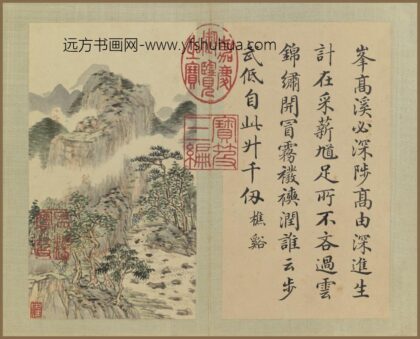 远方书画网-www.yfshuhua.com
峯高溪必深陟高由深進生
計在采薪馗足所不吝過雲
錦繡開冒霧襏襫潤誰云步
武低自此升千仞 樵谿
嘉慶御覽之寶
寶笈三編